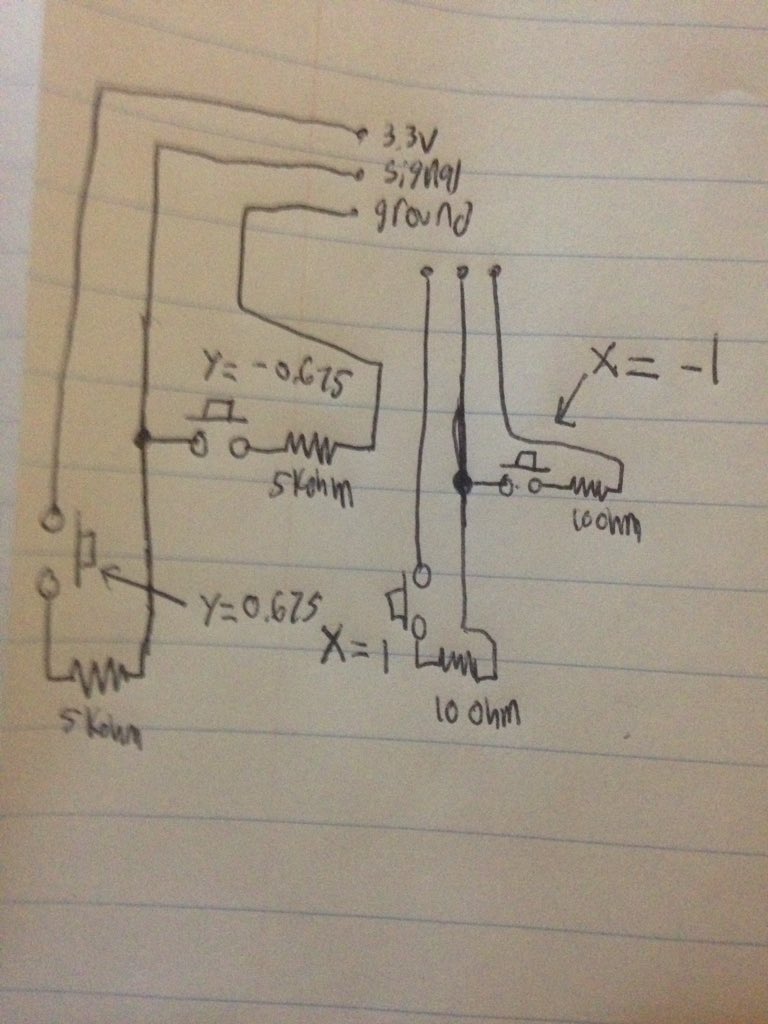 3.3V
signal
ground
Y= -0.675
X= -1
5Kohm
10ohm
Y=0.675
X=1
10 ohm
5Kohm